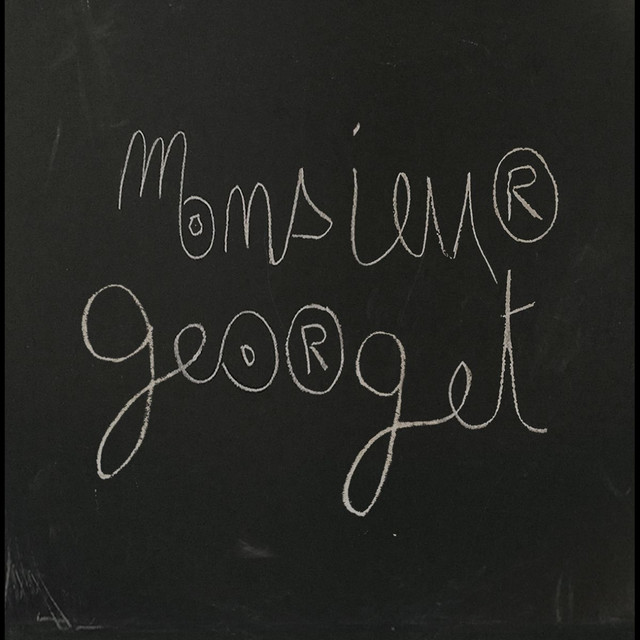 Monsieur
georget